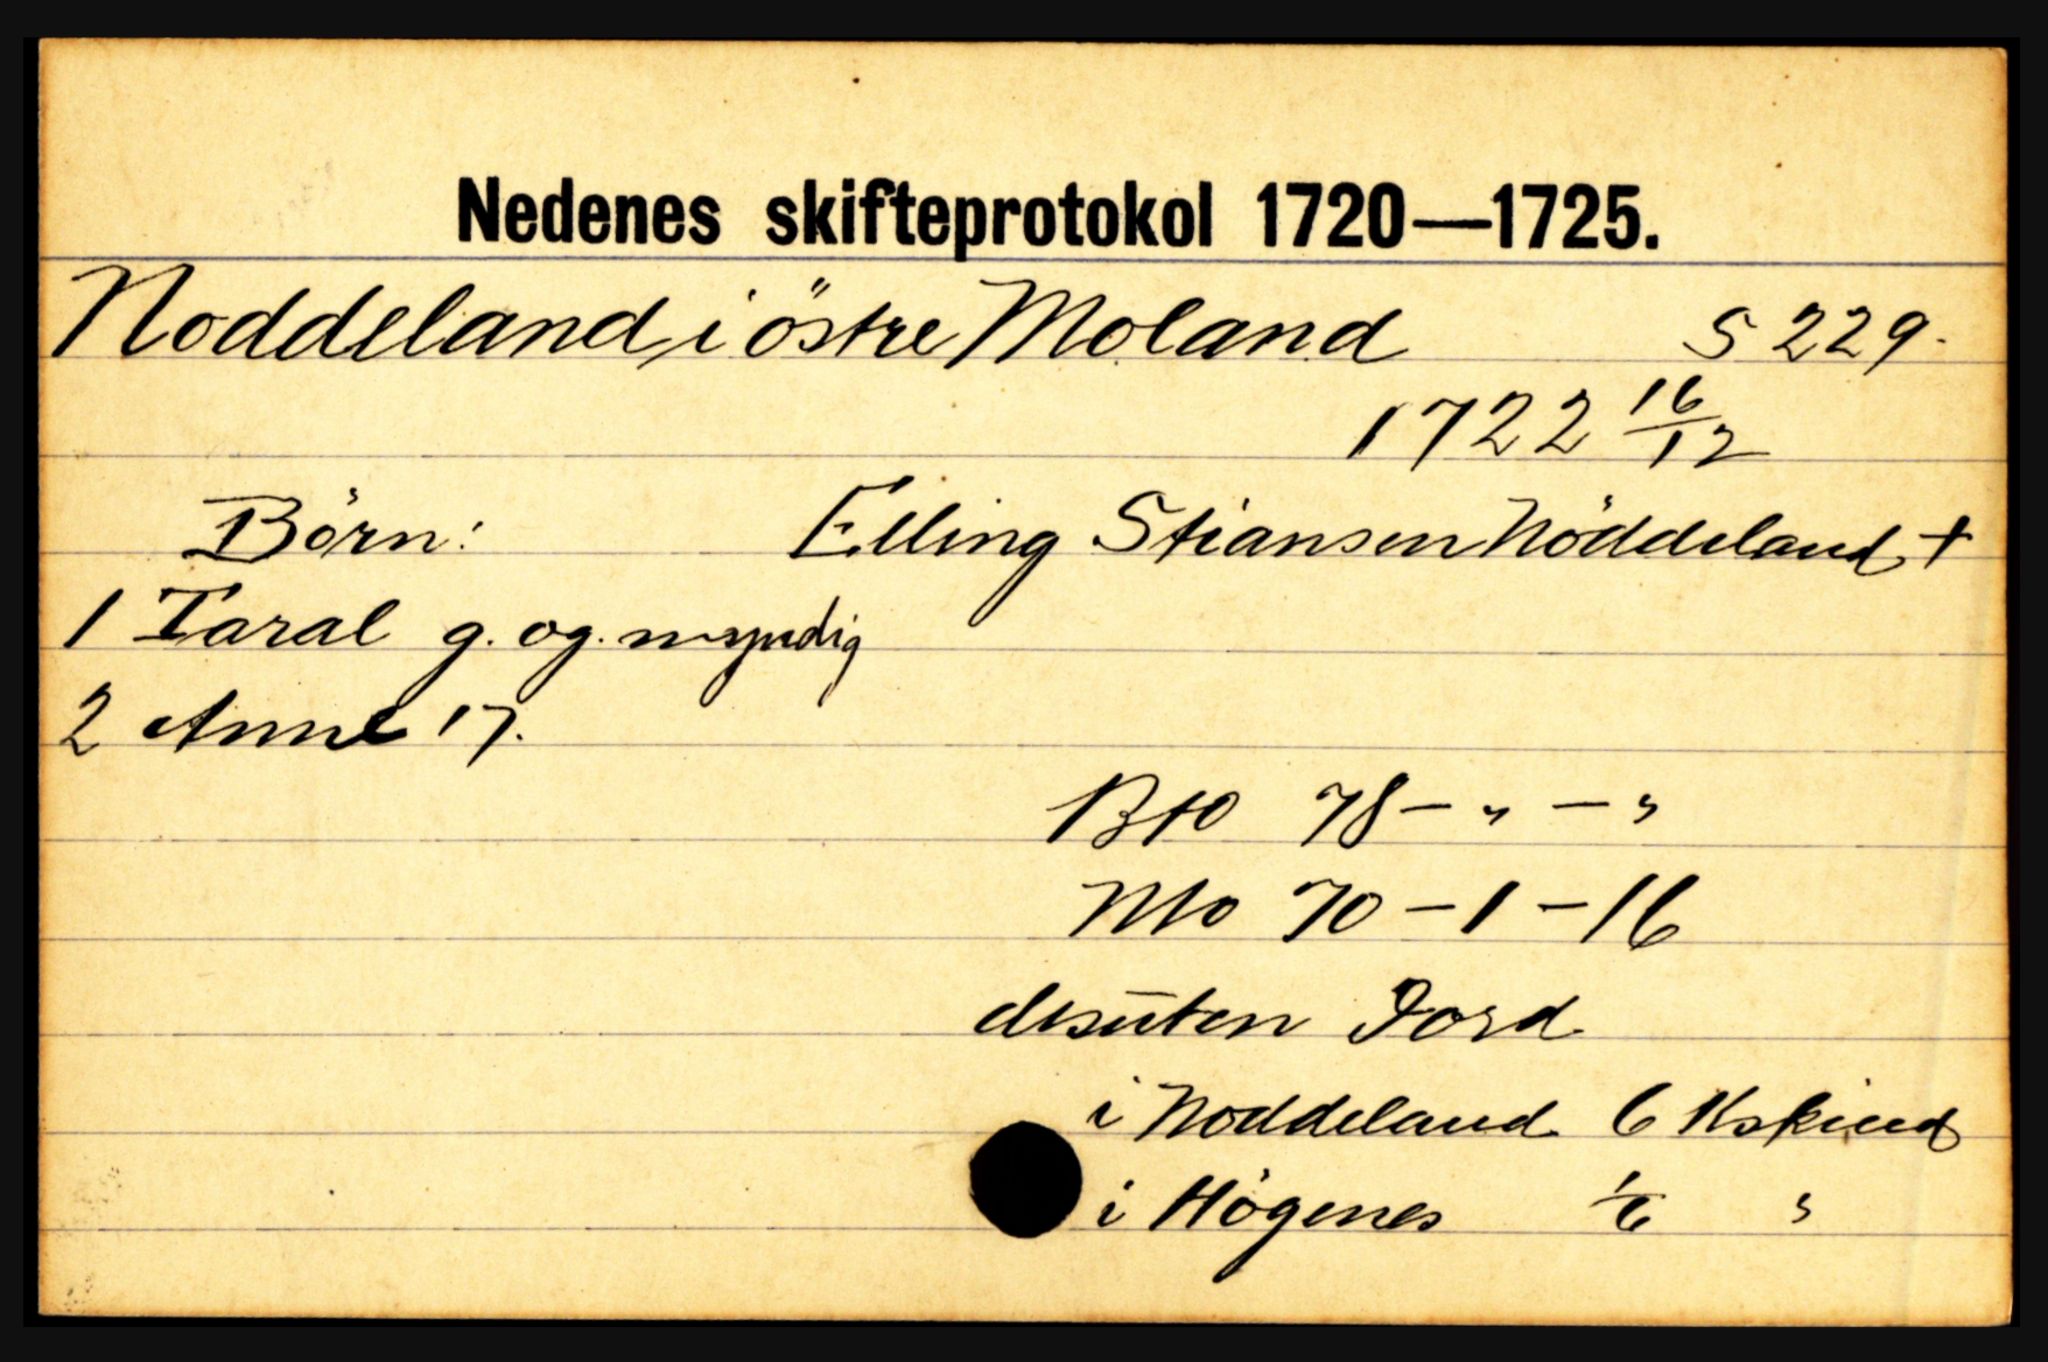 Nedenes skifteprotokol 1720—1725.
Noddeland i östre Moland S 229.
1722 16/12
Börn: Elling Stiansen Nöddeland +
1 Taral g. og. myndig
2 Anne 17.
Bto 78 – „ – „
Nto 70 – 1 – 16
desuten Jord
i Noddeland 6 Kskind
i Högenes 1/6 „